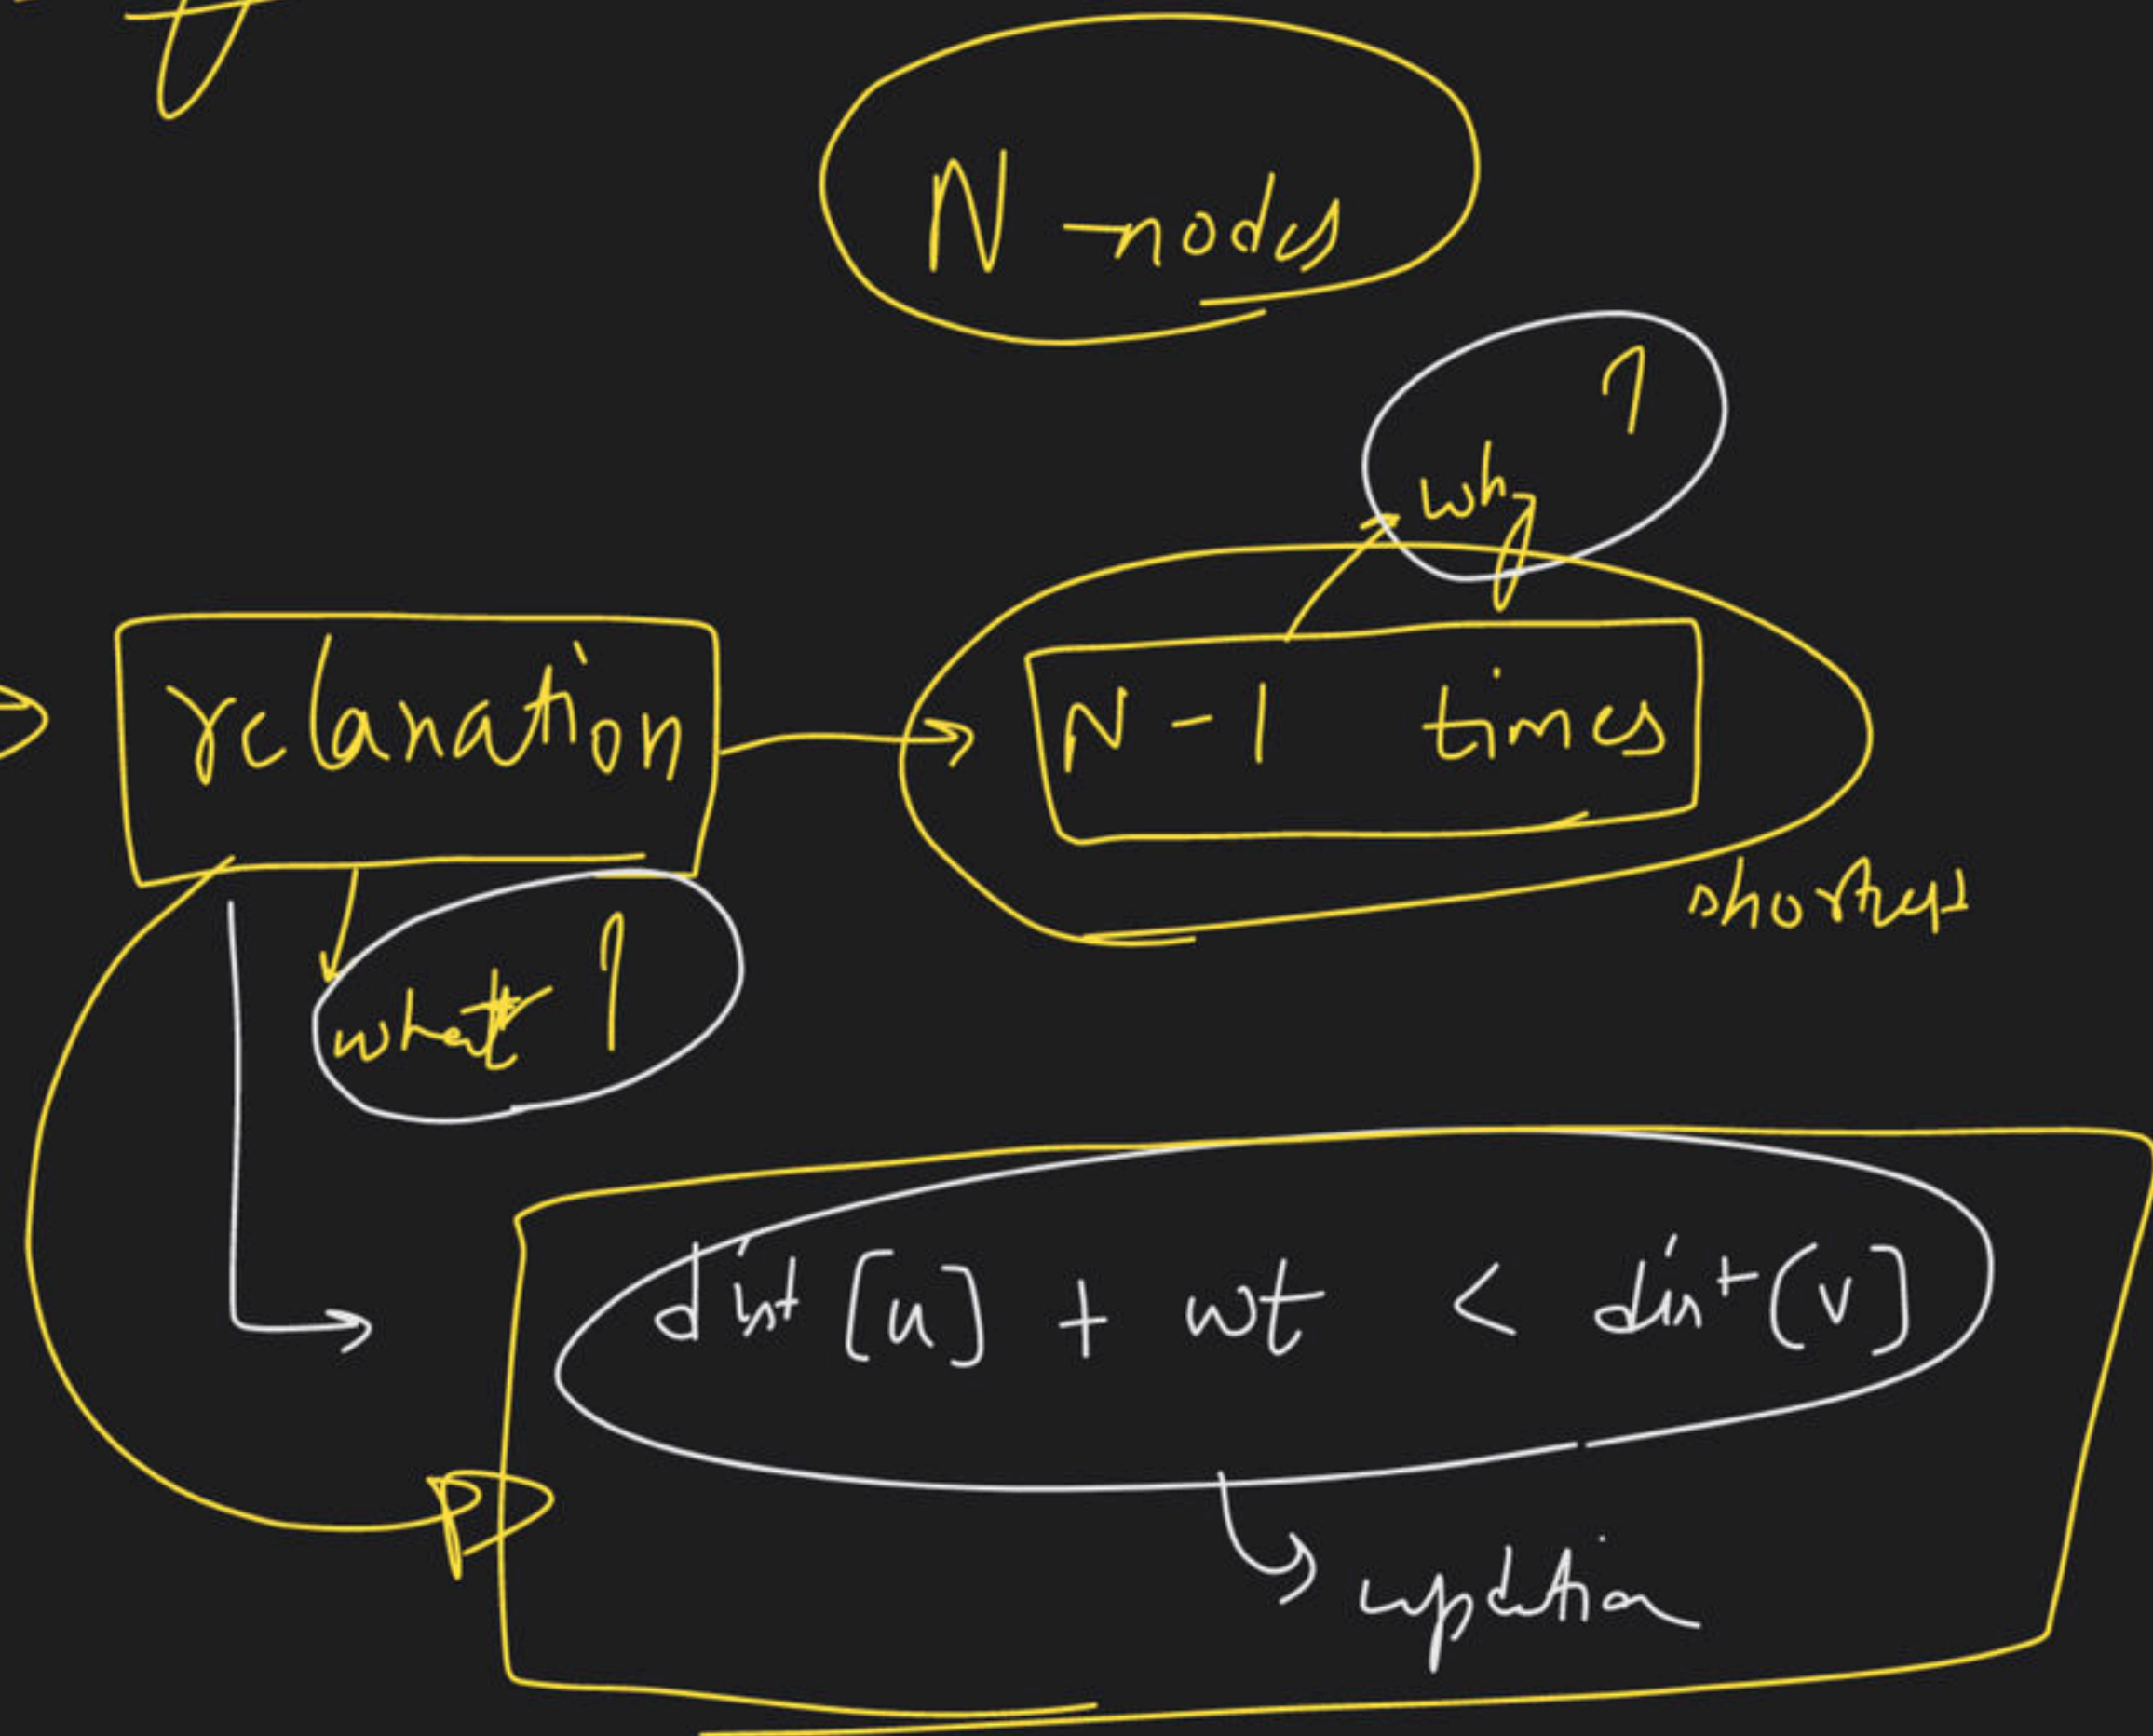 N - nodes
why ?
relaxation
N - 1 times
shortest
what ?
dist [u] + wt < dist [v]
updation